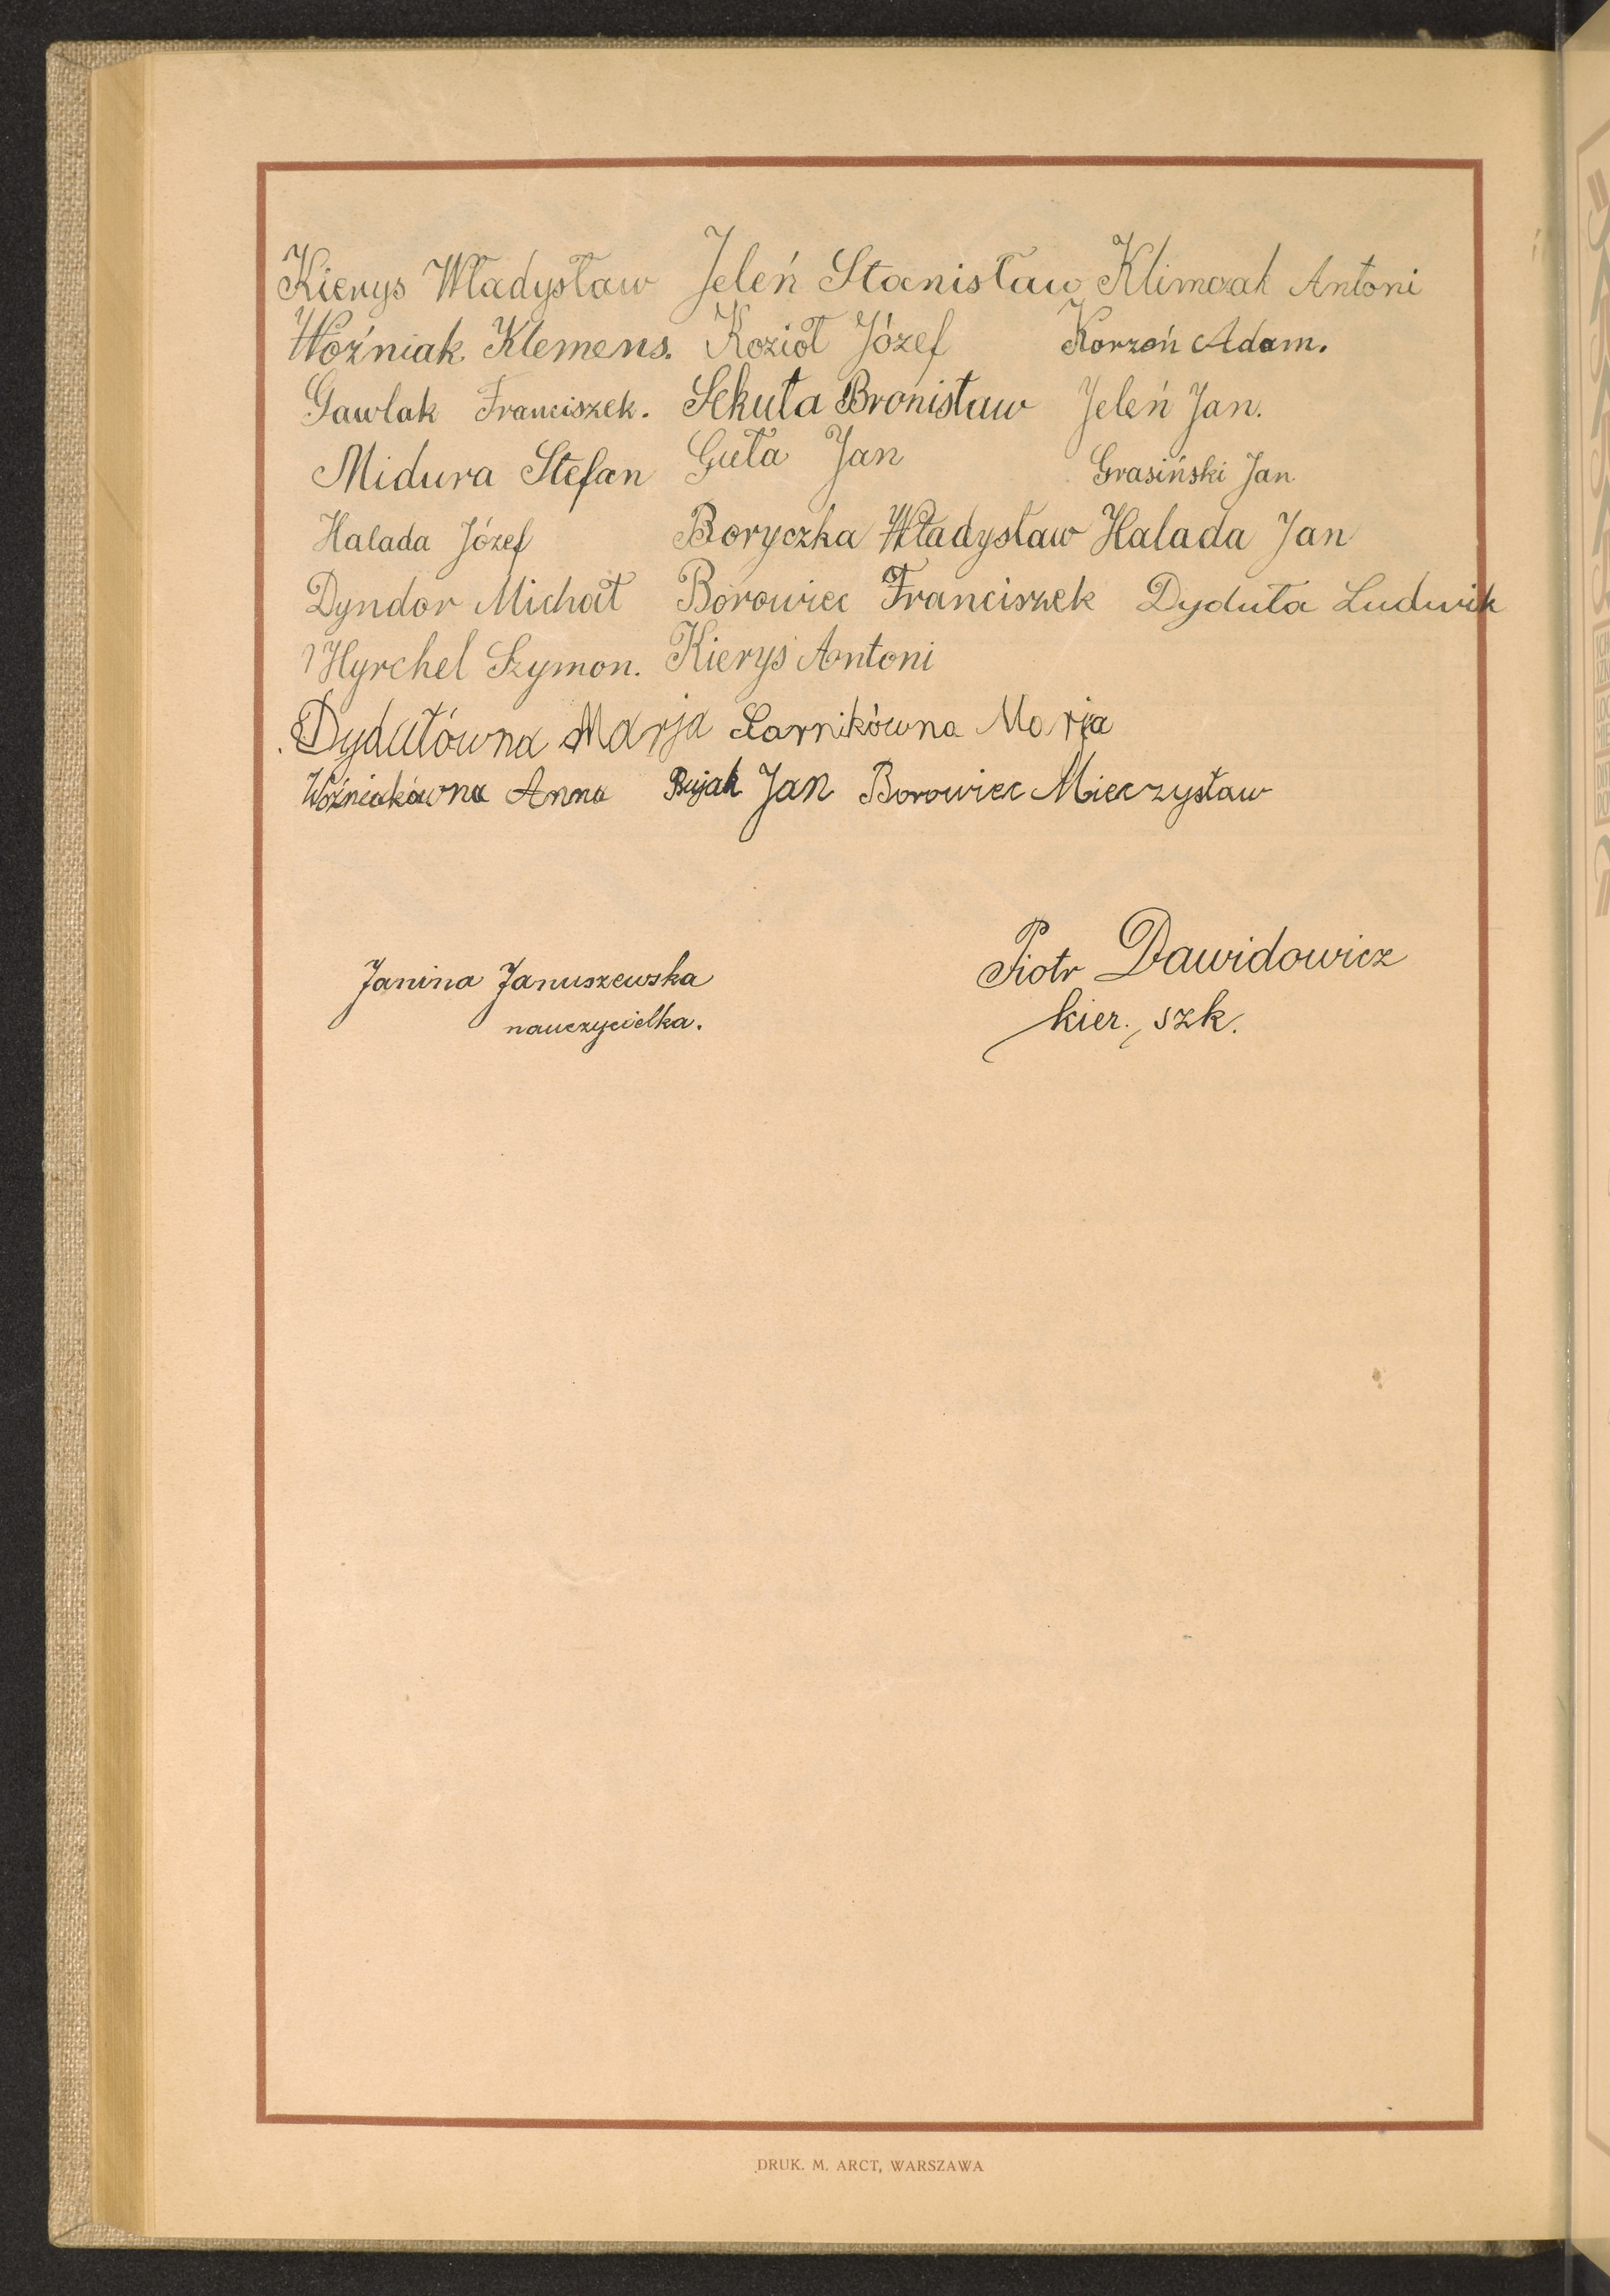 Kierys Władysław Jeleń Stanisław Klimczak Antoni
Woźniak Klemens. Kozioł Józef Korzeń Adam.
Gawlak Franciszek. Sekuła Bronisław Jeleń Jan.
Midura Stefan Guła Jan Grasiński Jan
Halada Józef Boryczka Władysław Halada Jan
Dyndor Michał Borowiec Franciszek Dyduła Ludwik
Hyrchel Szymon. Kierys Antoni
Dydułówna Marja Sarnikówna Marja
Woźniakówna Anna Bujak Jan Borowiec Mieczysław
Janina Januszewska Piotr Dawidowicz
nauczycielka. kier. szk.
DRUK. M. ARCT, WARSZAWA